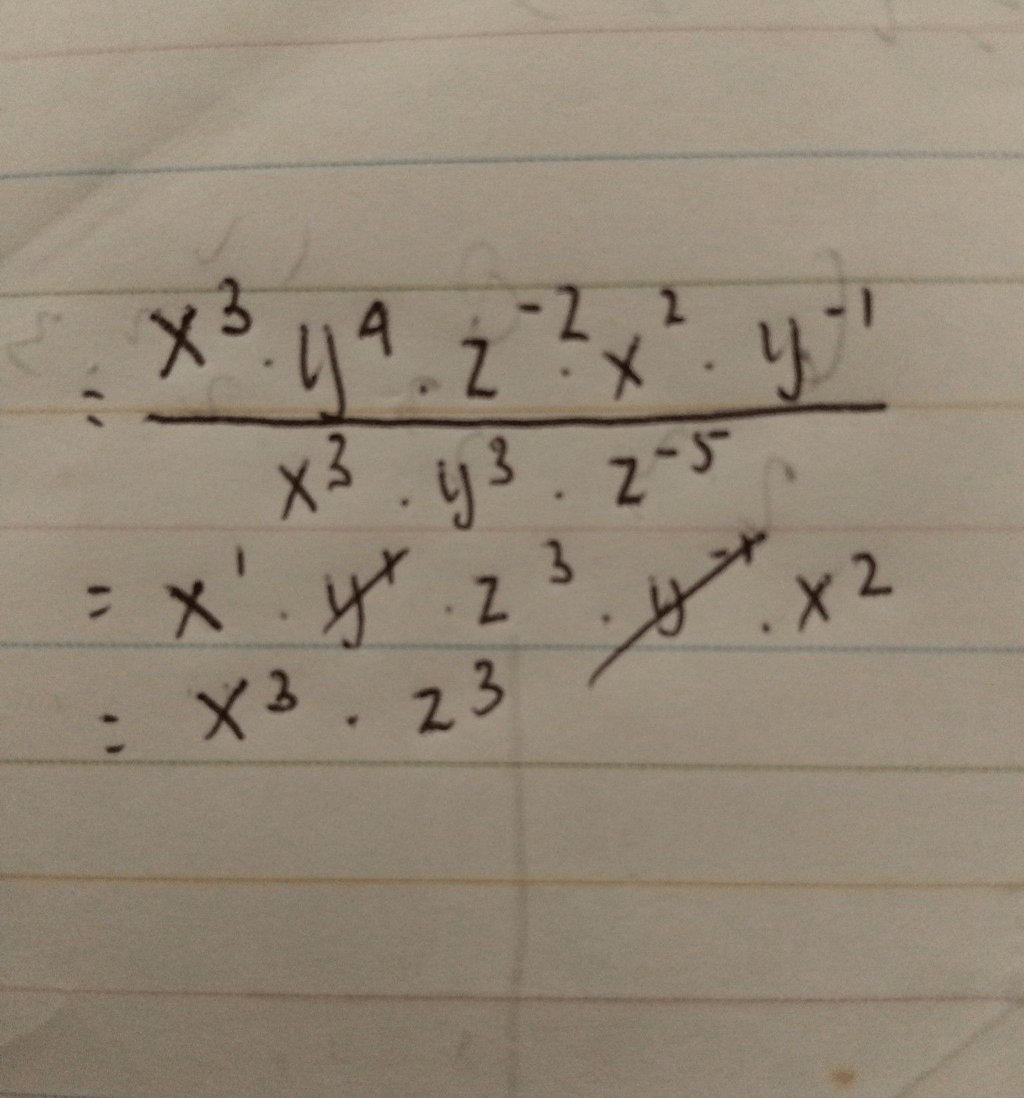 = x³ · y⁴ · z⁻² · x² · y⁻¹
x³ · y³ · z⁻⁵
= x¹ · y¹ · z³ · y⁻¹ · x²
= x³ · z³